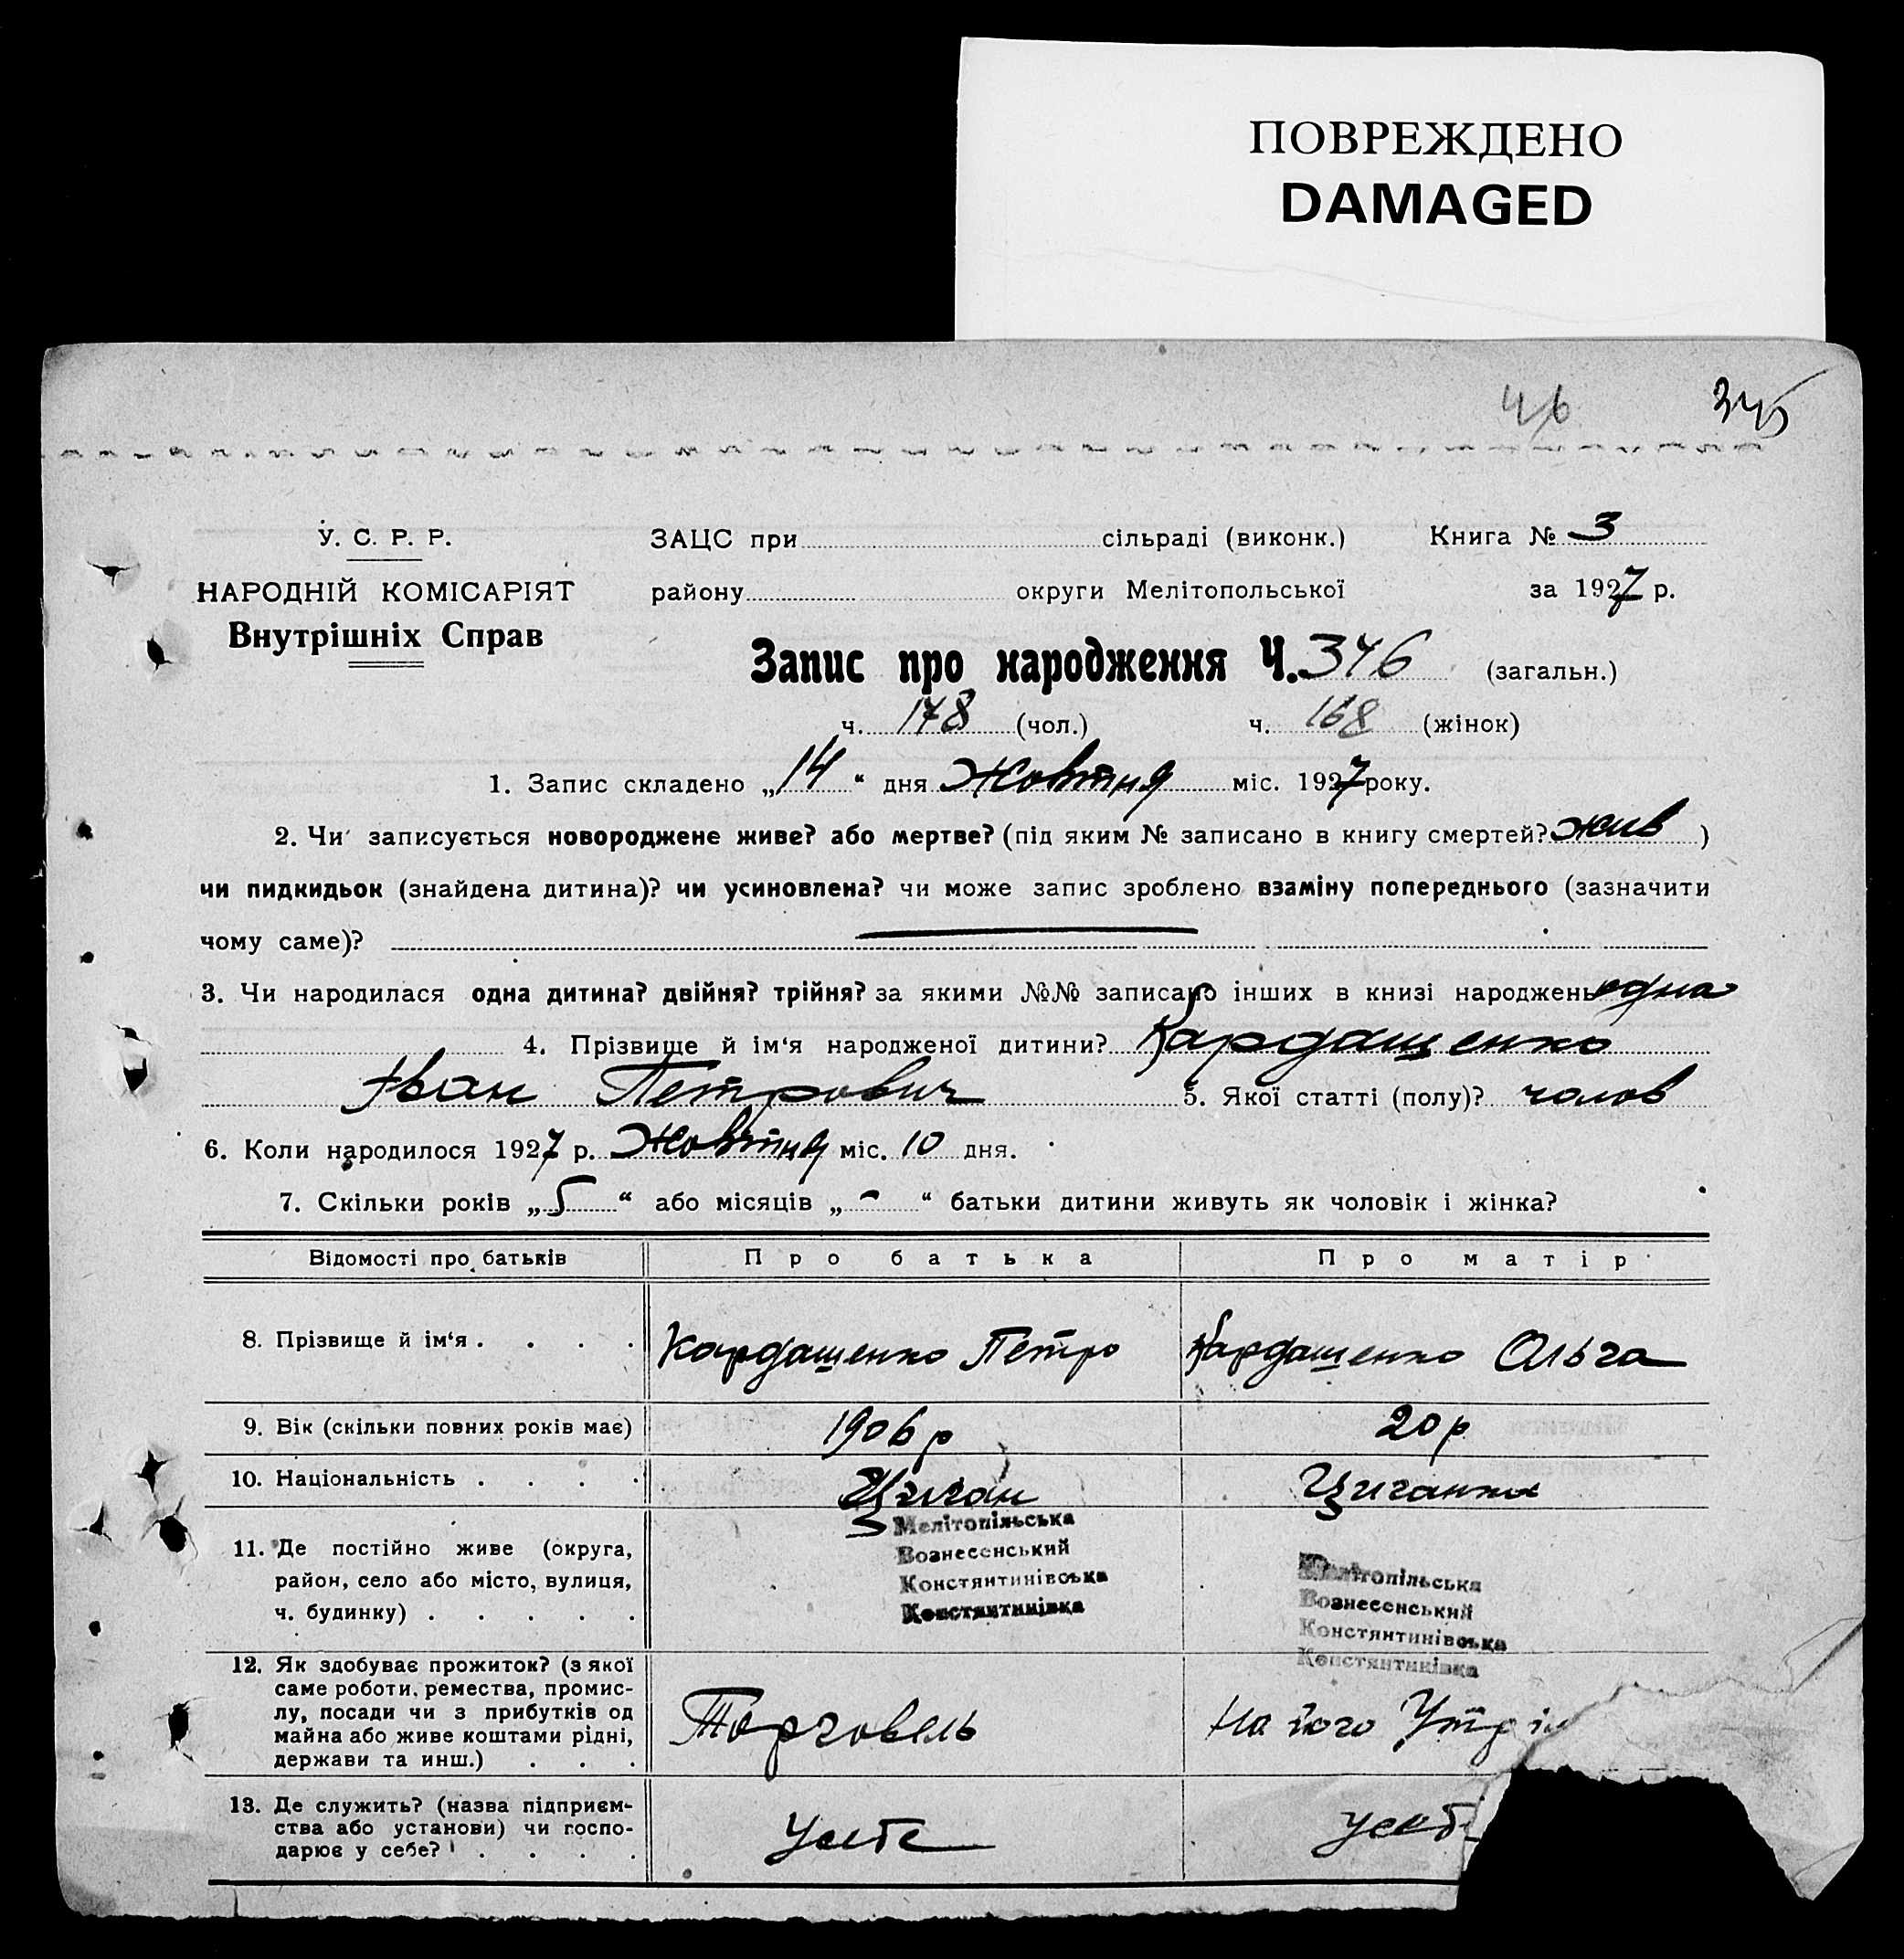 ПОВРЕЖДЕНО
DAMAGED
46 345
У. С. Р. Р. ЗАЦС при сільраді (виконк.) Книга № 3
НАРОДНІЙ КОМІСАРІЯТ району округи Мелітопольської за 1927 р.
Внутрішніх Справ
Запис про народження Ч. 346 (загальн.)
ч. 178 (чол.) ч. 168 (жінок)
1. Запис складено „14“ дня Жовтня міс. 1927 року.
2. Чи записується новороджене живе? або мертве? (під яким № записано в книгу смертей? жив)
чи пидкидьок (знайдена дитина)? чи усиновлена? чи може запис зроблено взаміну попереднього (зазначити
чому саме)?
3. Чи народилася одна дитина? двійня? трійня? за якими №№ записано інших в книзі народжень одна
4. Прізвище й ім‘я народженої дитини? Кардащенко
Іван Петрович 5. Якої статті (полу)? чолов
6. Коли народилося 1927 р. Жовтня міс. 10 дня.
7. Скільки років „5“ або місяців „-“ батьки дитини живуть як чоловік і жінка?
Відомості про батьків Про батька Про матір
8. Прізвище й ім‘я . . . . Кардащенко Петро Кардащенко Ольга
9. Вік (скільки повних років має) 1906 р 20 р
10. Національність . . . . Циган Циганка
11. Де постійно живе (округа,
район, село або місто, вулиця,
ч. будинку) . . . . .
Мелітопільська
Вознесенський
Константинівська
Константинівка
Мелітопільська
Вознесенський
Константинівська
Константинівка
12. Як здобуває прожиток? (з якої
саме роботи, ремества, промис-
лу, посади чи з прибутків од
майна або живе коштами рідні,
держави та инш.) . . .
Торговель На його Утрі
13. Де служить? (назва підприєм-
ства або установи) чи госпо-
дарює у себе? . . . .